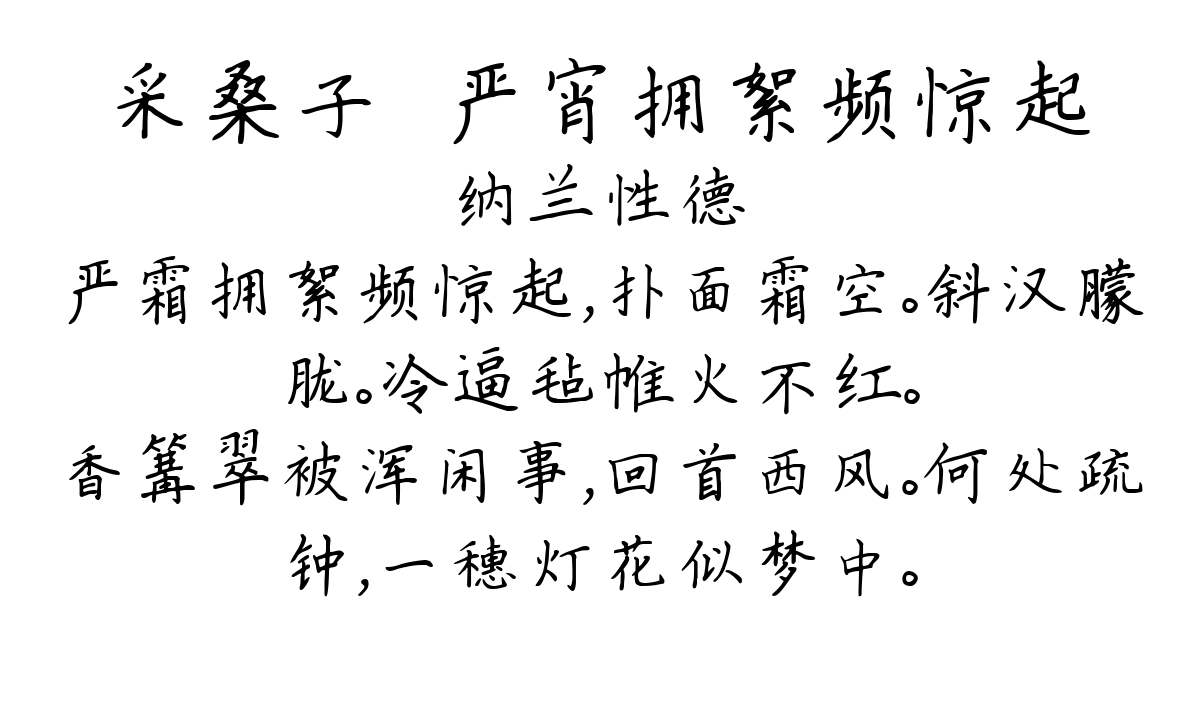 采桑子 严宵拥絮频惊起
纳兰性德
严霜拥絮频惊起,扑面霜空。斜汉朦
胧。冷逼毡帷火不红。
香篝翠被浑闲事,回首西风。何处疏
钟,一穗灯花似梦中。